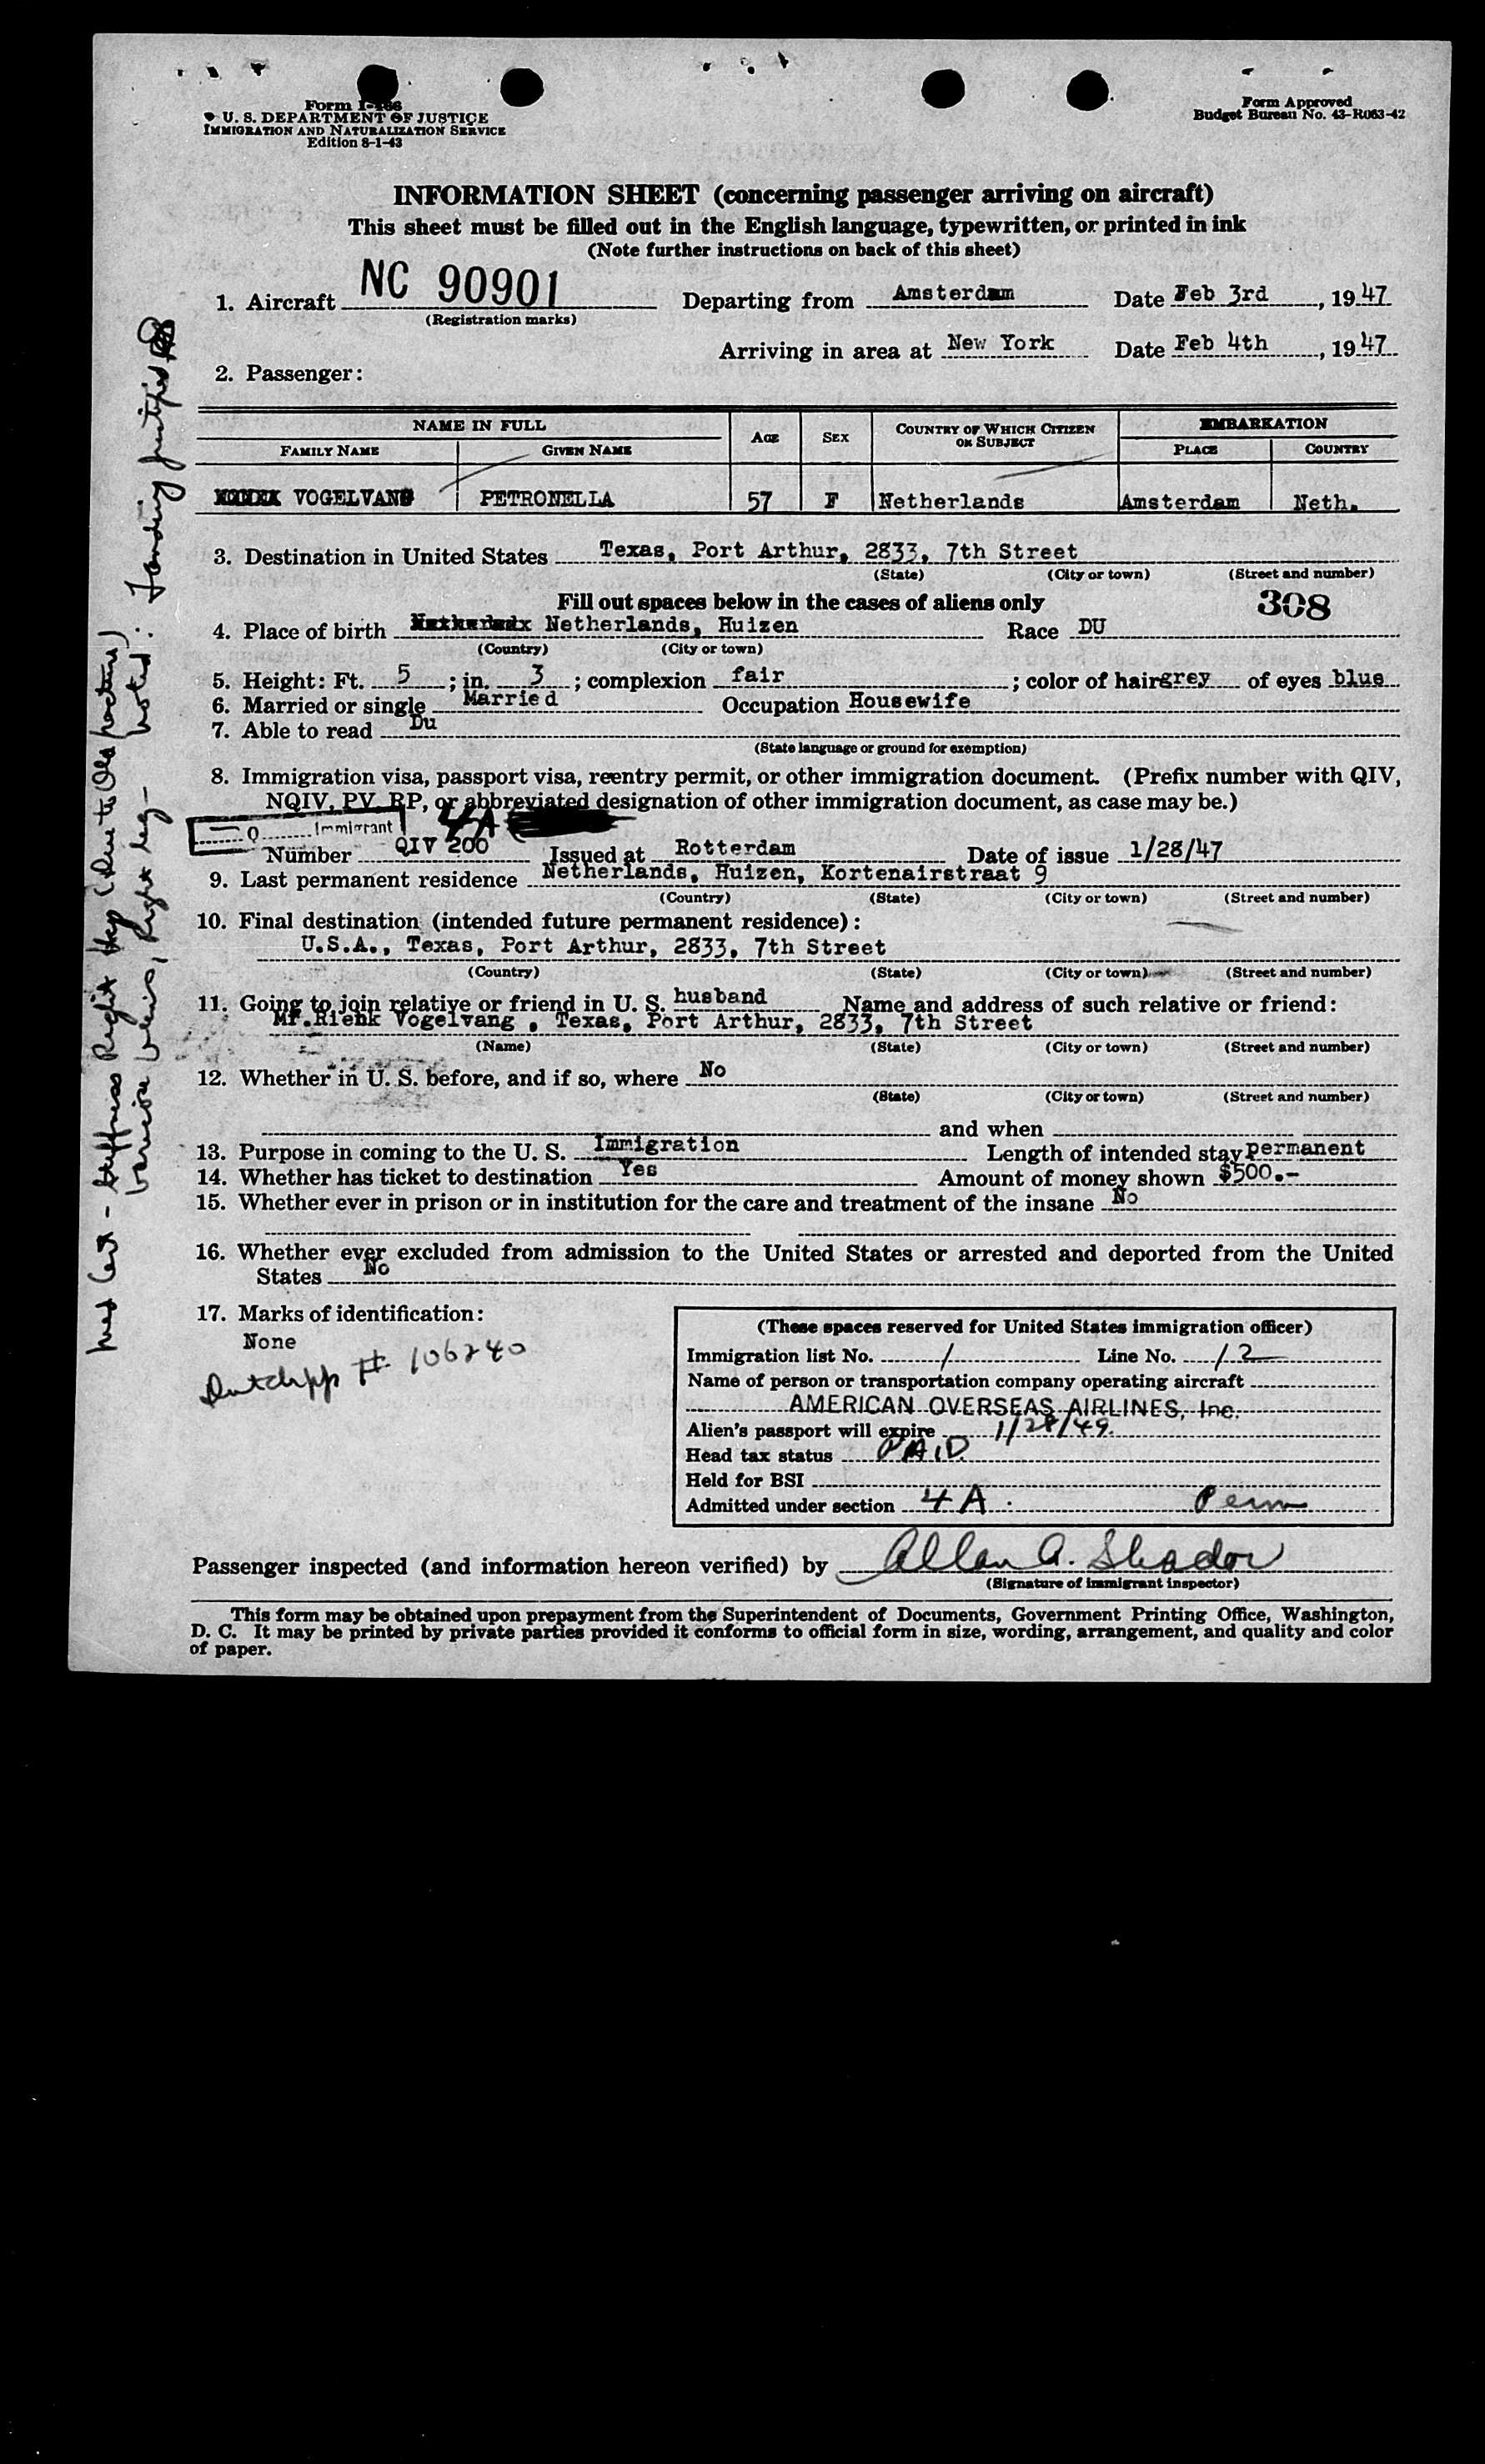 Form I-466
U. S. DEPARTMENT OF JUSTICE
IMMIGRATION AND NATURALIZATION SERVICE
Edition 8-1-43
Form Approved
Budget Bureau No. 43-R063-42
INFORMATION SHEET (concerning passenger arriving on aircraft)
This sheet must be filled out in the English language, typewritten, or printed in ink
(Note further instructions on back of this sheet)
1. Aircraft NC 90901 Departing from Amsterdam Date Feb 3rd, 1947
(Registration marks)
Arriving in area at New York Date Feb 4th, 1947
2. Passenger:
NAME IN FULL AGE SEX COUNTRY OF WHICH CITIZEN OR SUBJECT EMBARKATION
FAMILY NAME GIVEN NAME PLACE COUNTRY
VOGELVANG PETRONELLA 57 F Netherlands Amsterdam Neth.
3. Destination in United States Texas, Port Arthur, 2833, 7th Street
(State) (City or town) (Street and number)
Fill out spaces below in the cases of aliens only 308
4. Place of birth Netherlands, Huizen Race DU
(Country) (City or town)
5. Height: Ft. 5; in. 3; complexion fair; color of hair grey of eyes blue
6. Married or single Married Occupation Housewife
7. Able to read Du
(State language or ground for exemption)
8. Immigration visa, passport visa, reentry permit, or other immigration document. (Prefix number with QIV,
NQIV, PV, RP, or abbreviated designation of other immigration document, as case may be.)
Q Immigrant 4A
Number QIV 200 Issued at Rotterdam Date of issue 1/28/47
9. Last permanent residence Netherlands, Huizen, Kortenairstraat 9
(Country) (State) (City or town) (Street and number)
10. Final destination (intended future permanent residence):
U.S.A., Texas, Port Arthur, 2833, 7th Street
(Country) (State) (City or town) (Street and number)
11. Going to join relative or friend in U. S. husband Name and address of such relative or friend:
Mr.Rienk Vogelvang , Texas, Port Arthur, 2833, 7th Street
(Name) (State) (City or town) (Street and number)
12. Whether in U. S. before, and if so, where No
(State) (City or town) (Street and number)
and when
13. Purpose in coming to the U. S. Immigration Length of intended stay permanent
14. Whether has ticket to destination Yes Amount of money shown $500.-
15. Whether ever in prison or in institution for the care and treatment of the insane No
16. Whether ever excluded from admission to the United States or arrested and deported from the United
States No
17. Marks of identification:
None
Dutch pp # 106240
(These spaces reserved for United States immigration officer)
Immigration list No. 1 Line No. 12
Name of person or transportation company operating aircraft
AMERICAN OVERSEAS AIRLINES, Inc.
Alien's passport will expire 1/28/49.
Head tax status PAID
Held for BSI
Admitted under section 4A Perm
Passenger inspected (and information hereon verified) by Allan A. Shador
(Signature of immigrant inspector)
This form may be obtained upon prepayment from the Superintendent of Documents, Government Printing Office, Washington,
D. C. It may be printed by private parties provided it conforms to official form in size, wording, arrangement, and quality and color
of paper.
Med Cert - Stiffness Right Hip (Due to Old fracture)
varicose veins, Right leg - noted: Landing justified